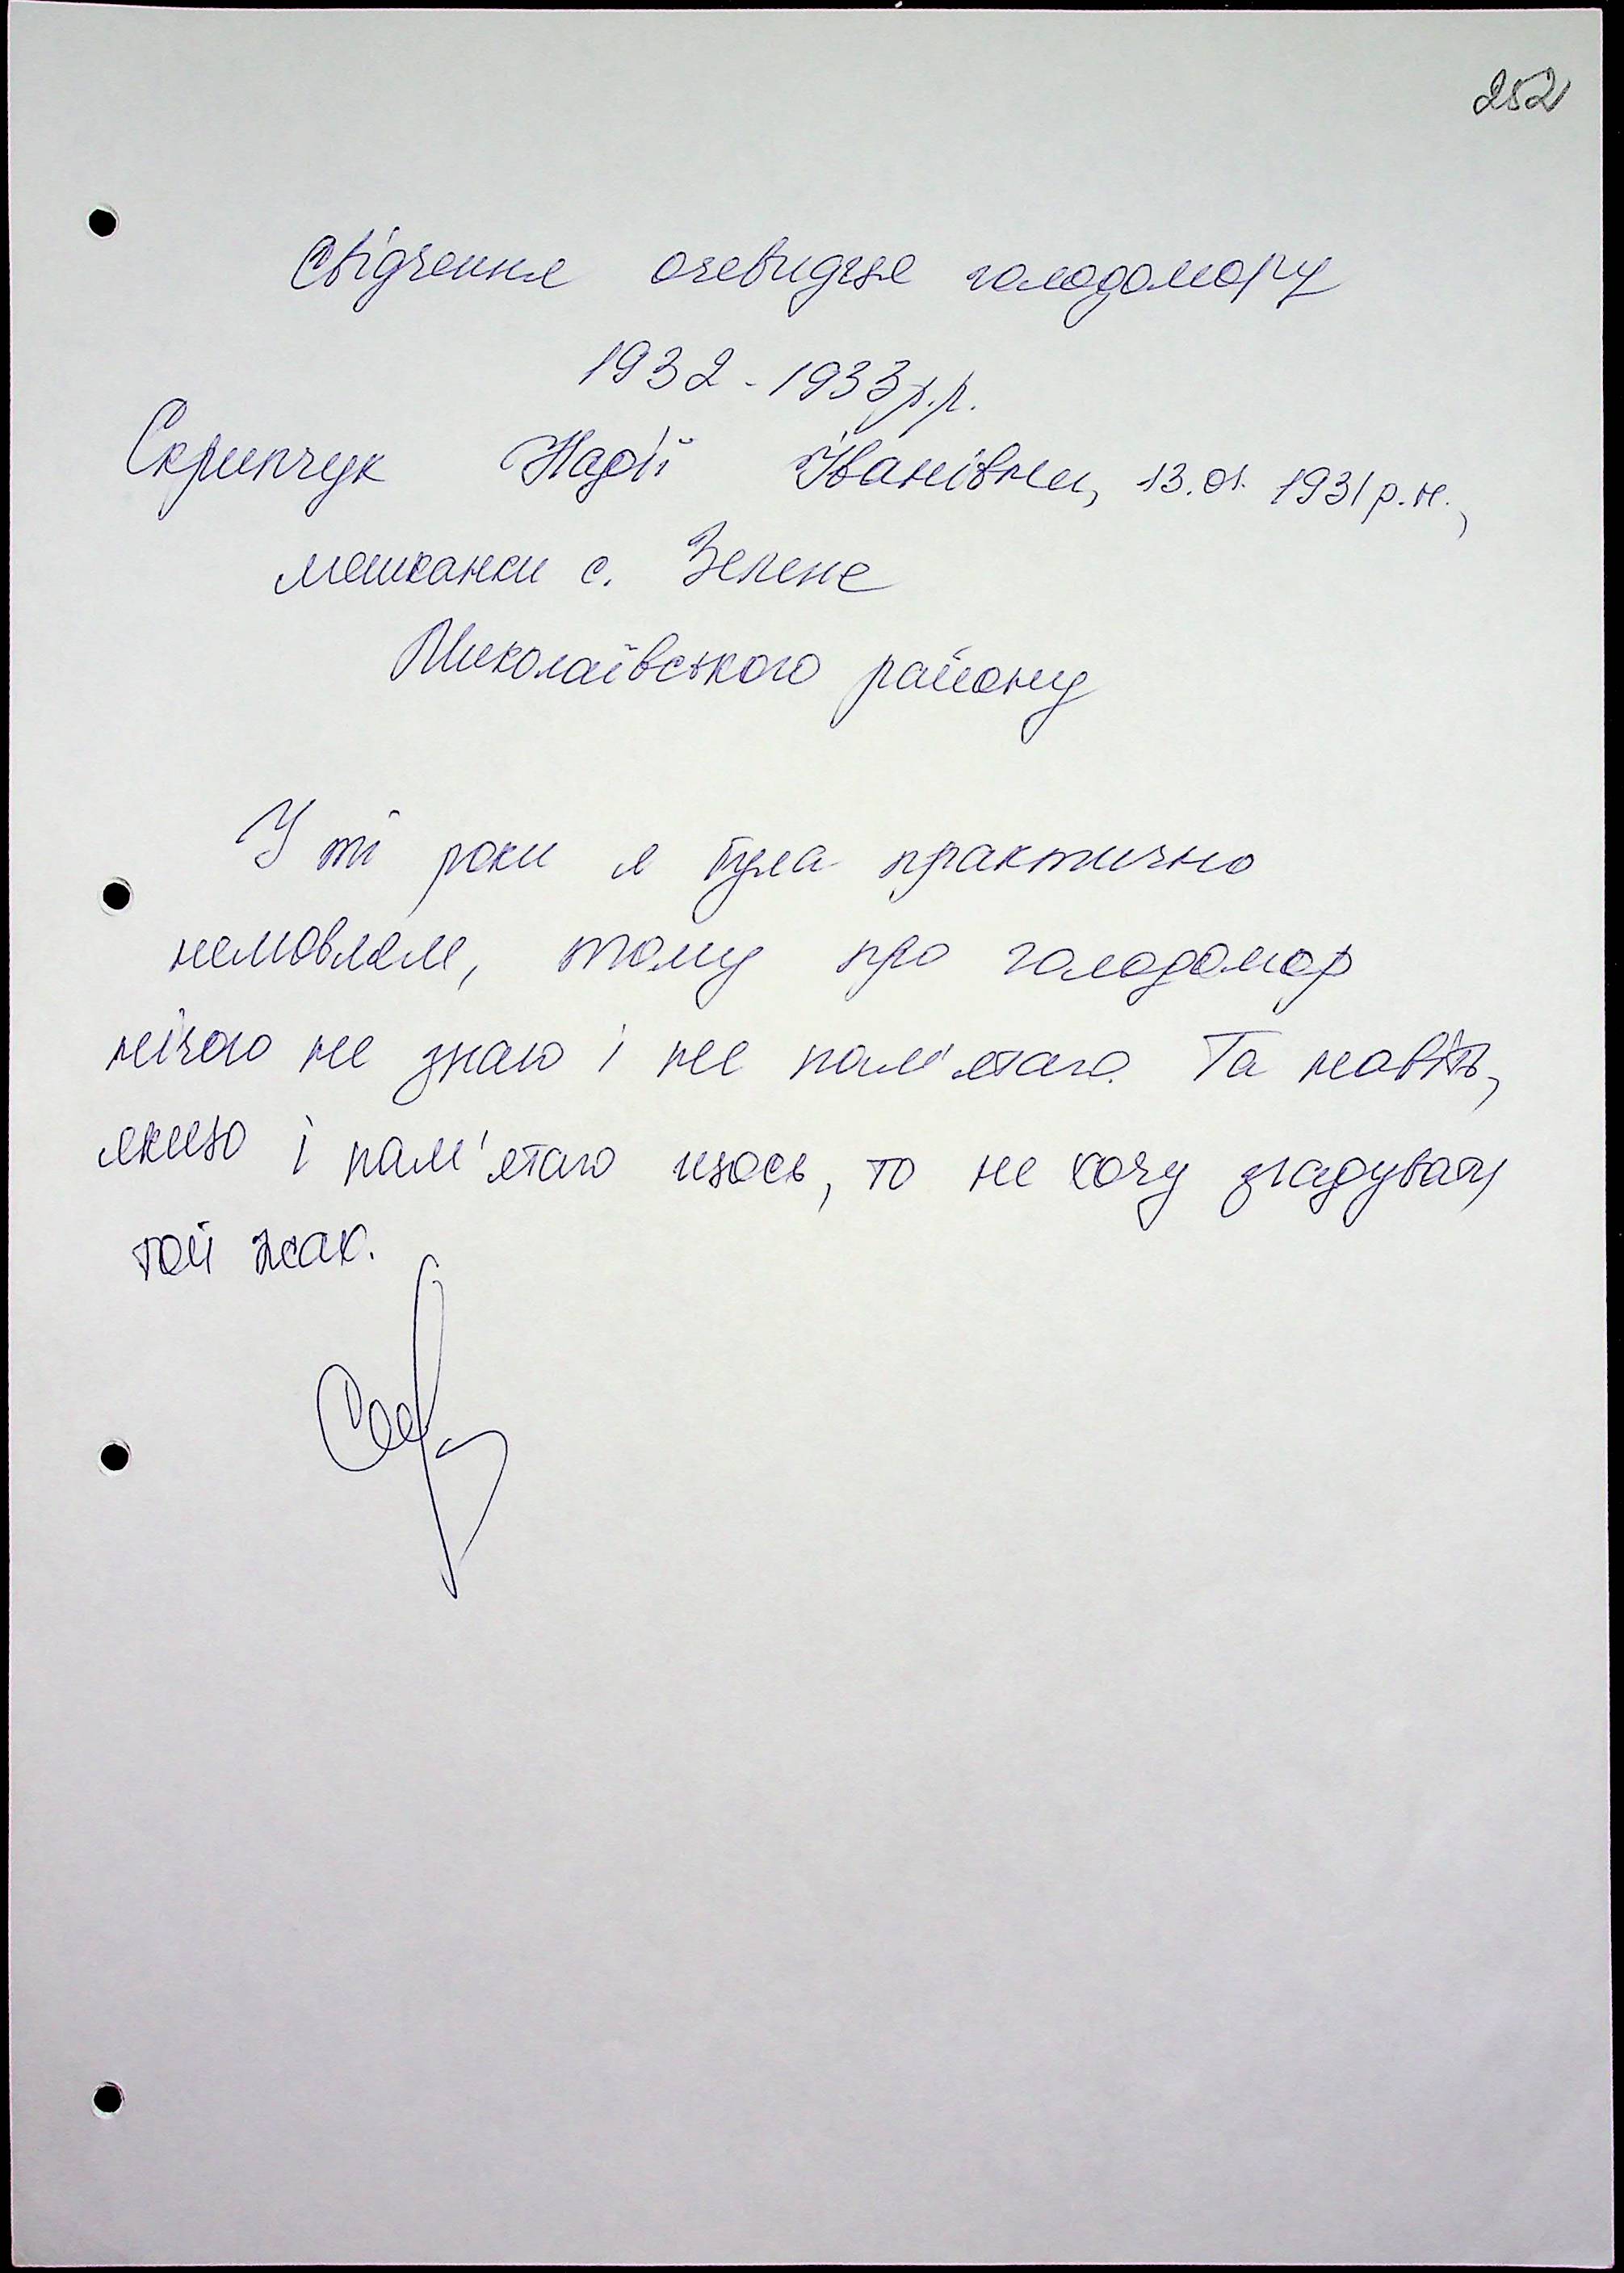 252
Свідчення очевидця голодомору
1932-1933р.р.
Скрипчук Надії Іванівни, 13.01.1931р.н.,
мешканки с. Зелене
Миколаївського району
У ті роки я була практично
немовлям, тому про голодомор
нічого не знаю і не пам'ятаю. Та навіть,
якщо і пам'ятаю щось, то не хочу згадувати
той жах.